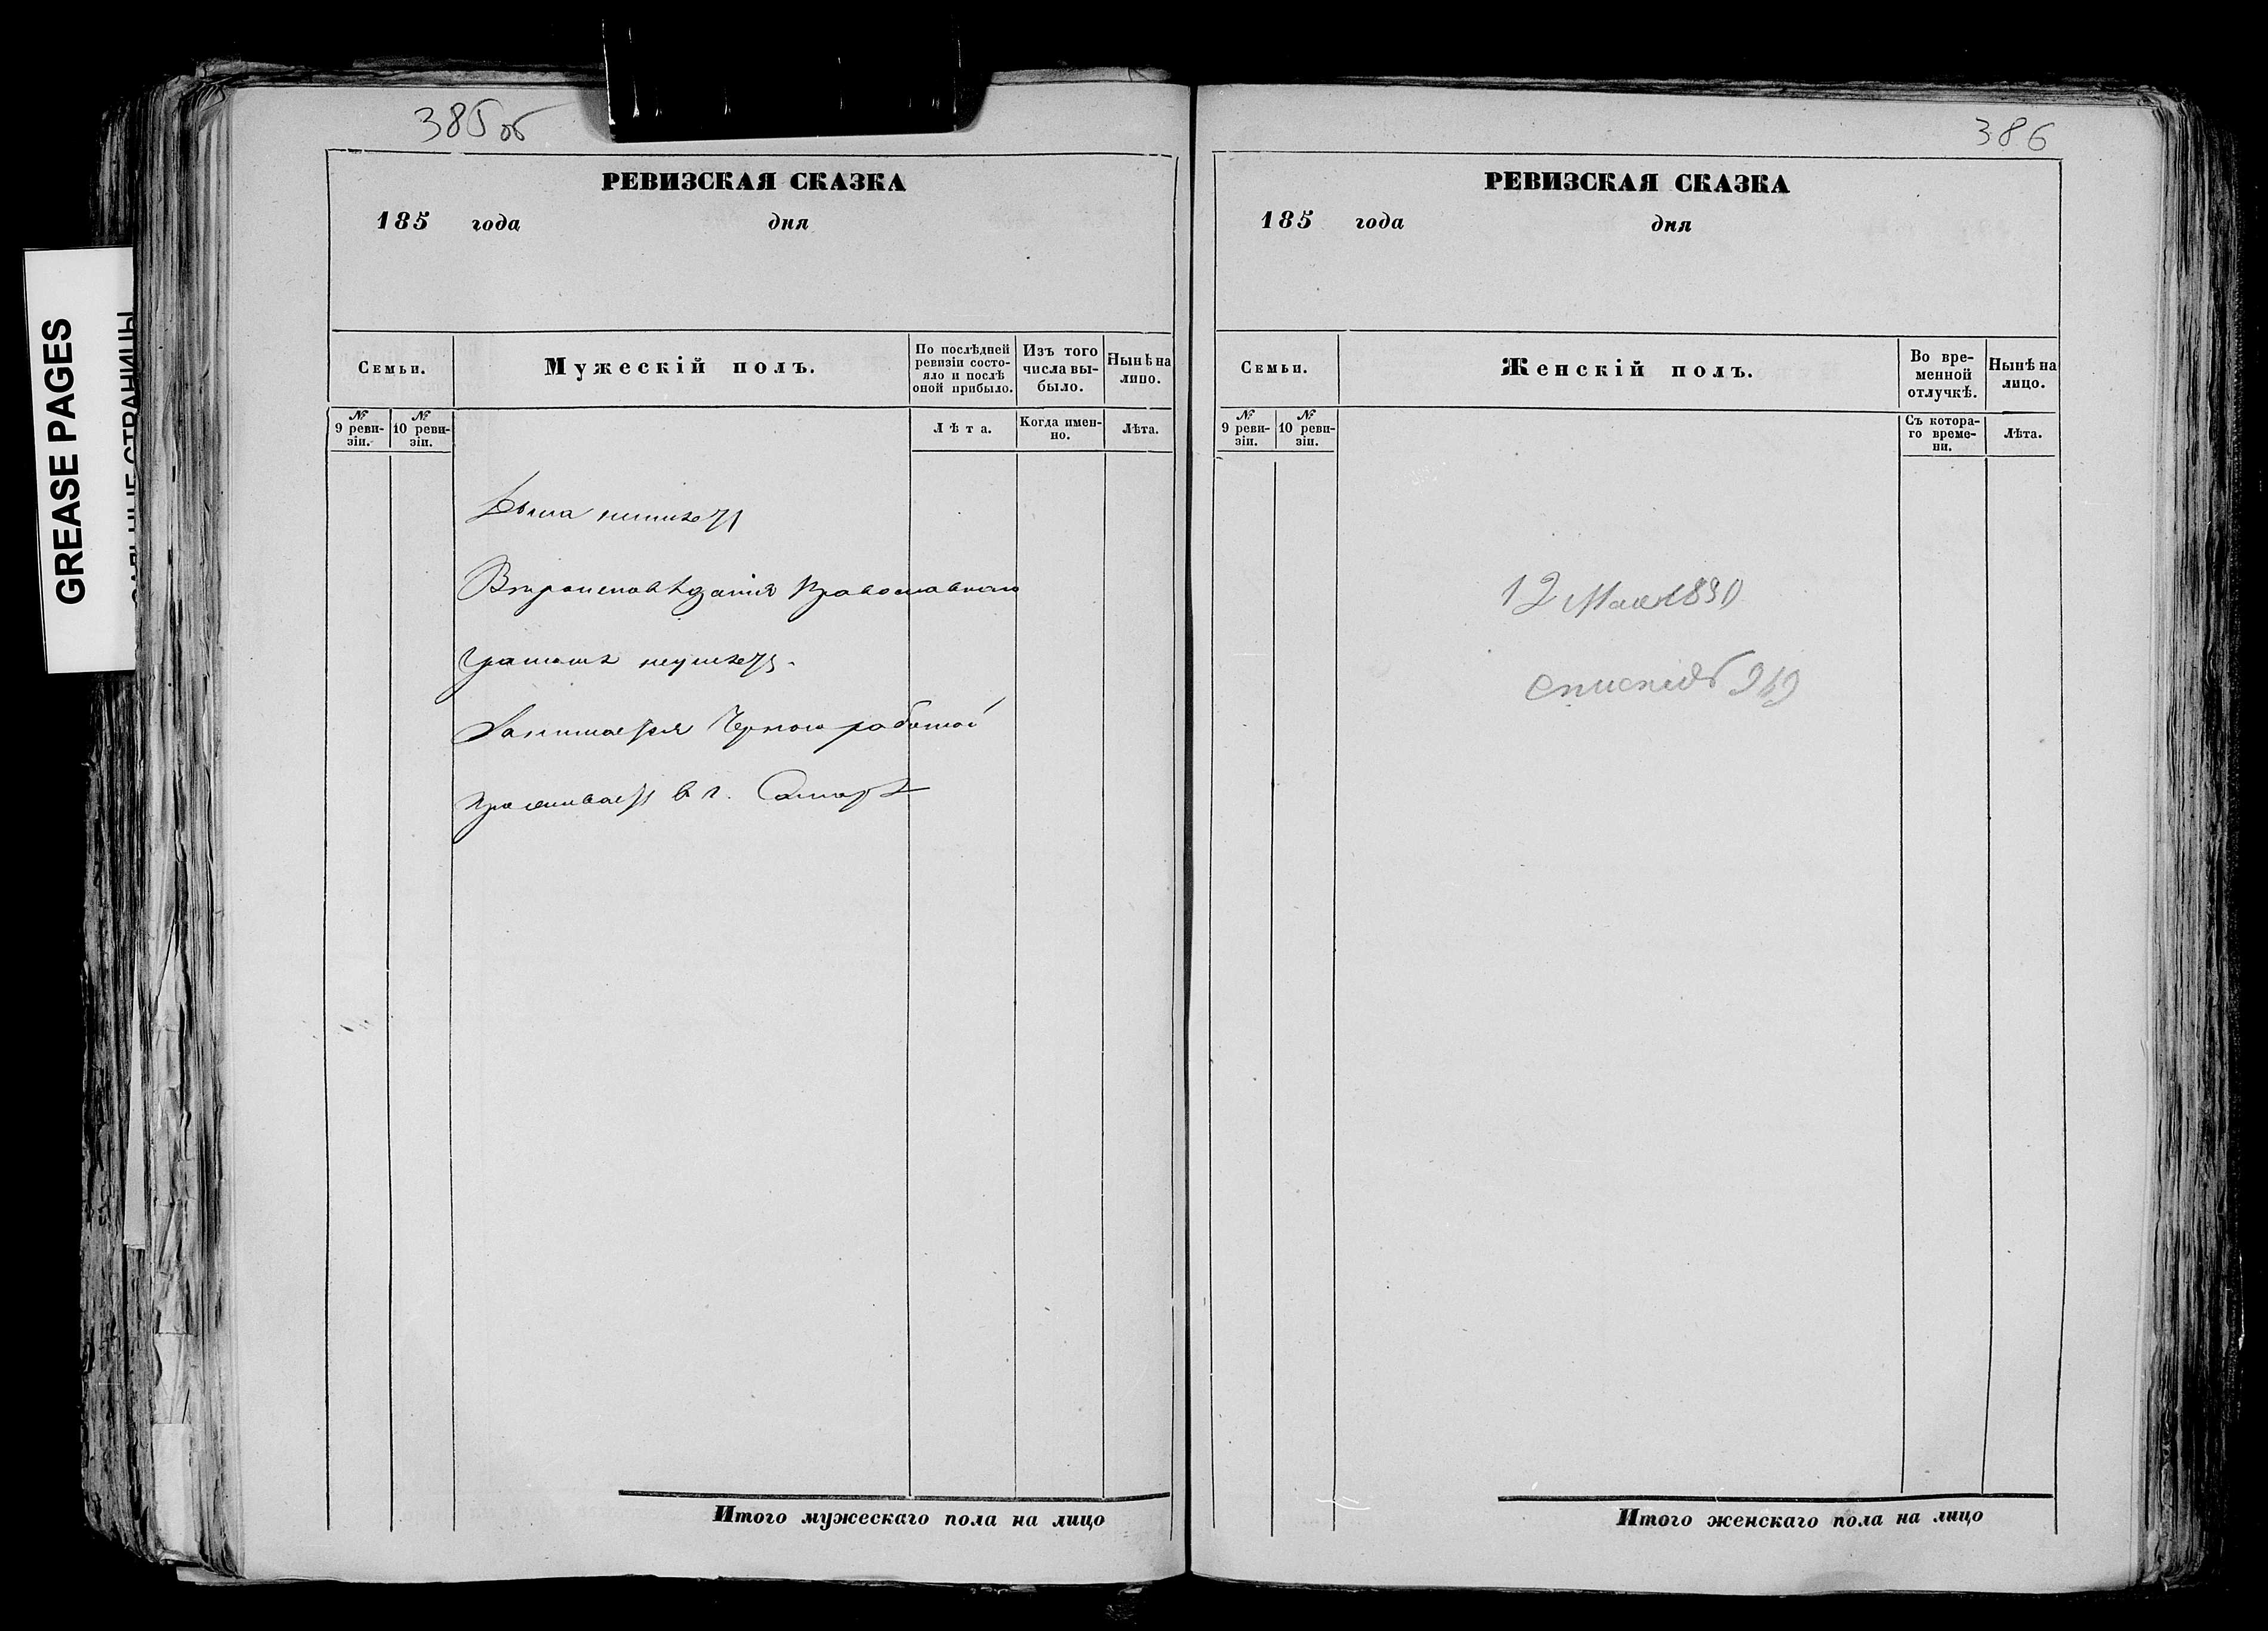 385об
РЕВИЗСКАЯ СКАЗКА
185 года дня
Семьи.
Мужескій полъ.
По послѣдней ревизіи состо-
яло и послѣ оной прибыло.
Изъ того числа вы-
было.
Нынѣ на лицо.
№ 9 реви-
зіи.
№ 10 реви-
зіи.
Лѣта.
Когда имен-
но.
Лѣта.
Дома неимѣетъ
Вѣроисповѣданія Православнаго
Грамотѣ неумѣетъ.
Занимается Черною работой
Проживаетъ в г. Самарѣ
Итого мужескаго пола на лицо
386
РЕВИЗСКАЯ СКАЗКА
185 года дня
Семьи.
Женскій полъ.
Во вре-
менной
отлучкѣ.
Нынѣ на
лицо.
№ 9 реви-
зіи.
№ 10 реви-
зіи.
Съ котора-
го време-
ни.
Лѣта.
12 Мая
Итого женскаго пола на лицо
GREASE PAGES